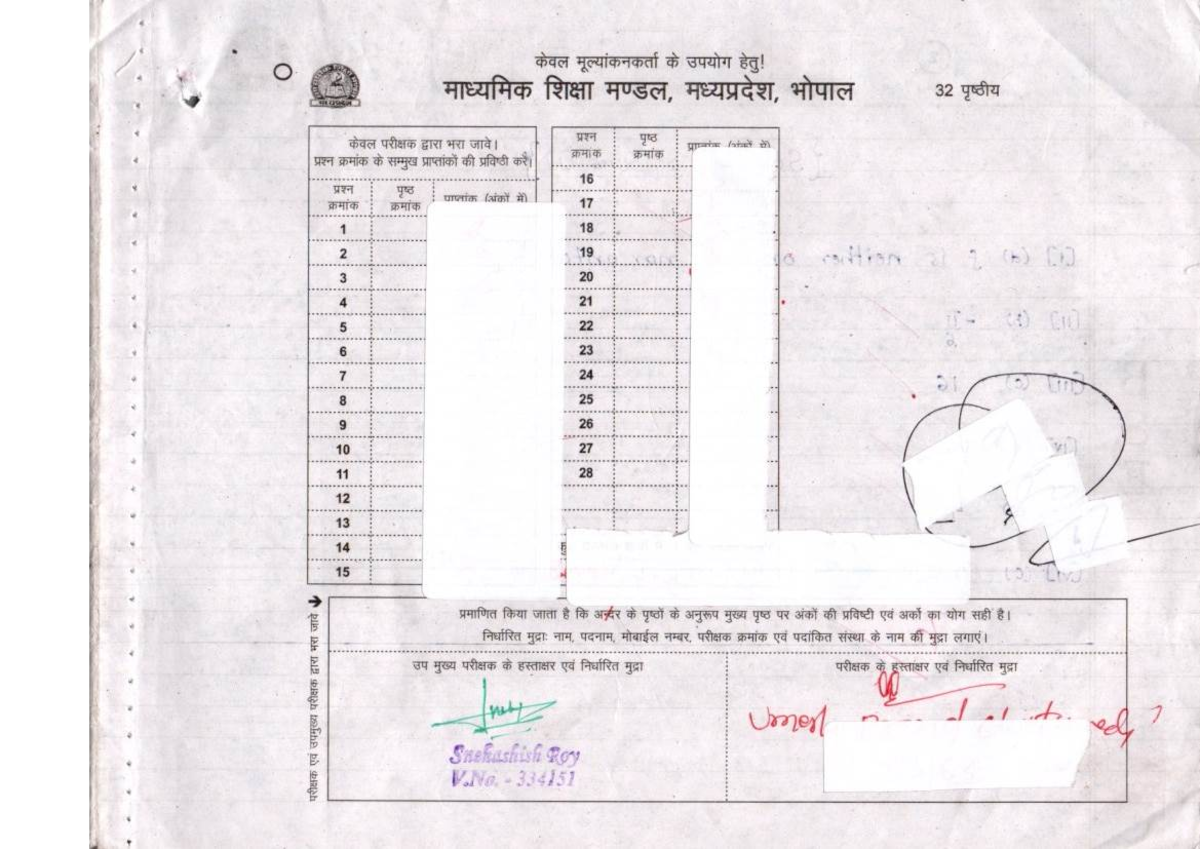 केवल मूल्यांकनकर्ता के उपयोग हेतु!
माध्यमिक शिक्षा मण्डल, मध्यप्रदेश, भोपाल
32 पृष्ठीय
केवल परीक्षक द्वारा भरा जावे।
प्रश्न क्रमांक के सम्मुख प्राप्तांकों की प्रविष्ठी करें।
प्रश्न क्रमांक
पृष्ठ क्रमांक
प्राप्तांक (अंकों में)
1
2
3
4
5
6
7
8
9
10
11
12
13
14
15
प्रश्न क्रमांक
पृष्ठ क्रमांक
प्राप्तांक (अंकों में)
16
17
18
19
20
21
22
23
24
25
26
27
28
परीक्षक एवं उपमुख्य परीक्षक द्वारा भरा जावे
प्रमाणित किया जाता है कि अन्दर के पृष्ठों के अनुरूप मुख्य पृष्ठ पर अंकों की प्रविष्टी एवं अंकों का योग सही है।
निर्धारित मुद्राः नाम, पदनाम, मोबाईल नम्बर, परीक्षक क्रमांक एवं पदांकित संस्था के नाम की मुद्रा लगाएं।
उप मुख्य परीक्षक के हस्ताक्षर एवं निर्धारित मुद्रा
परीक्षक के हस्ताक्षर एवं निर्धारित मुद्रा
Snehashish Roy
V.No. - 334151